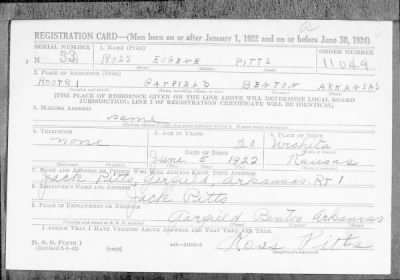 REGISTRATION CARD—(Men born on or after January 1, 1922 and on or before June 30, 1924)
SERIAL NUMBER 1. NAME (Print) ORDER NUMBER
N 53 ROSS EUGENE PITTS 11049
2. PLACE OF RESIDENCE (Print)
ROUTE 1 GARFIELD BENTON ARKANSAS
[THE PLACE OF RESIDENCE GIVEN ON THE LINE ABOVE WILL DETERMINE LOCAL BOARD
JURISDICTION; LINE 2 OF REGISTRATION CERTIFICATE WILL BE IDENTICAL]
3. MAILING ADDRESS
Same
4. TELEPHONE 5. AGE IN YEARS 6. PLACE OF BIRTH
none 20 Wichita
DATE OF BIRTH
June 5 1922 Kansas
7. NAME AND ADDRESS OF PERSON WHO WILL ALWAYS KNOW YOUR ADDRESS
Jack Pitts, Garfield, Arkansas. Rt 1
8. EMPLOYER'S NAME AND ADDRESS
Jack Pitts
9. PLACE OF EMPLOYMENT OR BUSINESS
Garfield Benton Arkansas
I AFFIRM THAT I HAVE VERIFIED ABOVE ANSWERS AND THAT THEY ARE TRUE.
D. S. S. Form 1
Ross Pitts